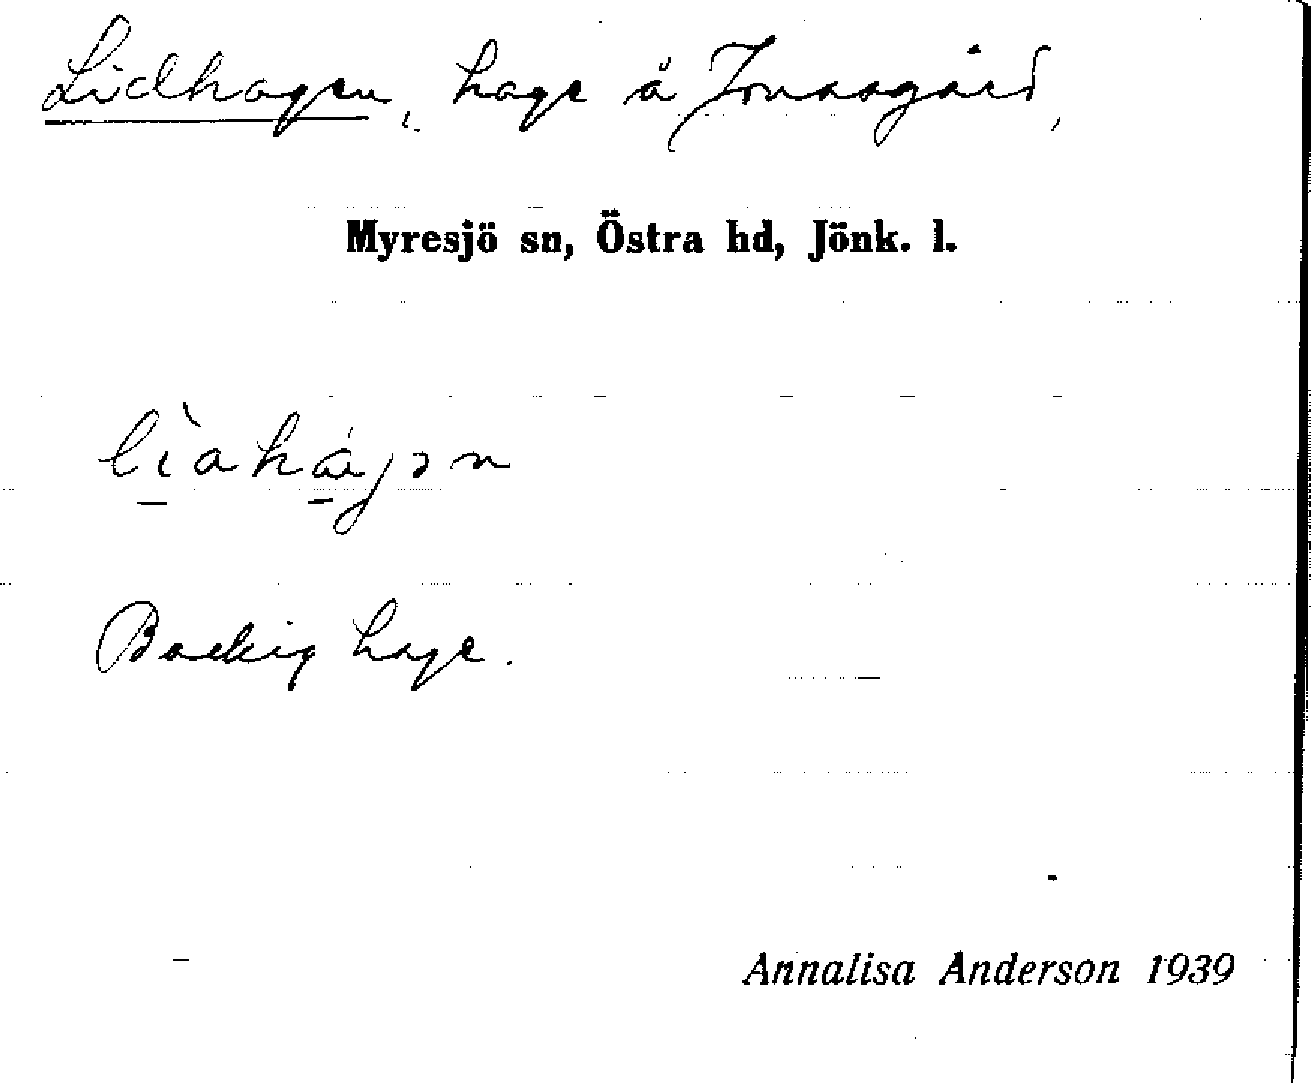 Lidhagen, hage å Jonasgård,
Myresjö sn, Östra hd, Jönk. l.
lìahágən
Backig hage.
Annalisa Anderson 1939